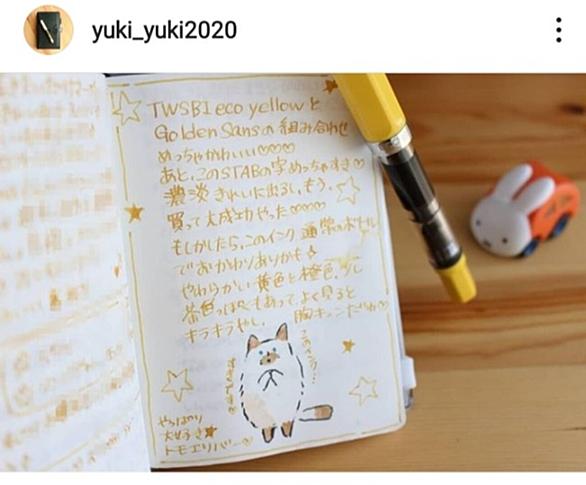 yuki_yuki2020
TWSBI eco yellowと
Golden Sansの組み合わせ
めっちゃかわいい♡♡♡
あと、このSTABの字めっちゃすき♡
濃淡きれいに出るし、もう、
買って大成功やった♡♡♡♡♡
もしかしたら、このインク通常のボトル
でおかわりありかも
やわらかい黄色と橙色、少し
茶色っぽくもあって、よく見ると
キラキラやし、胸キュンだわ♡
すきです♡
やっぱり
大好き★
トモエリバー♡